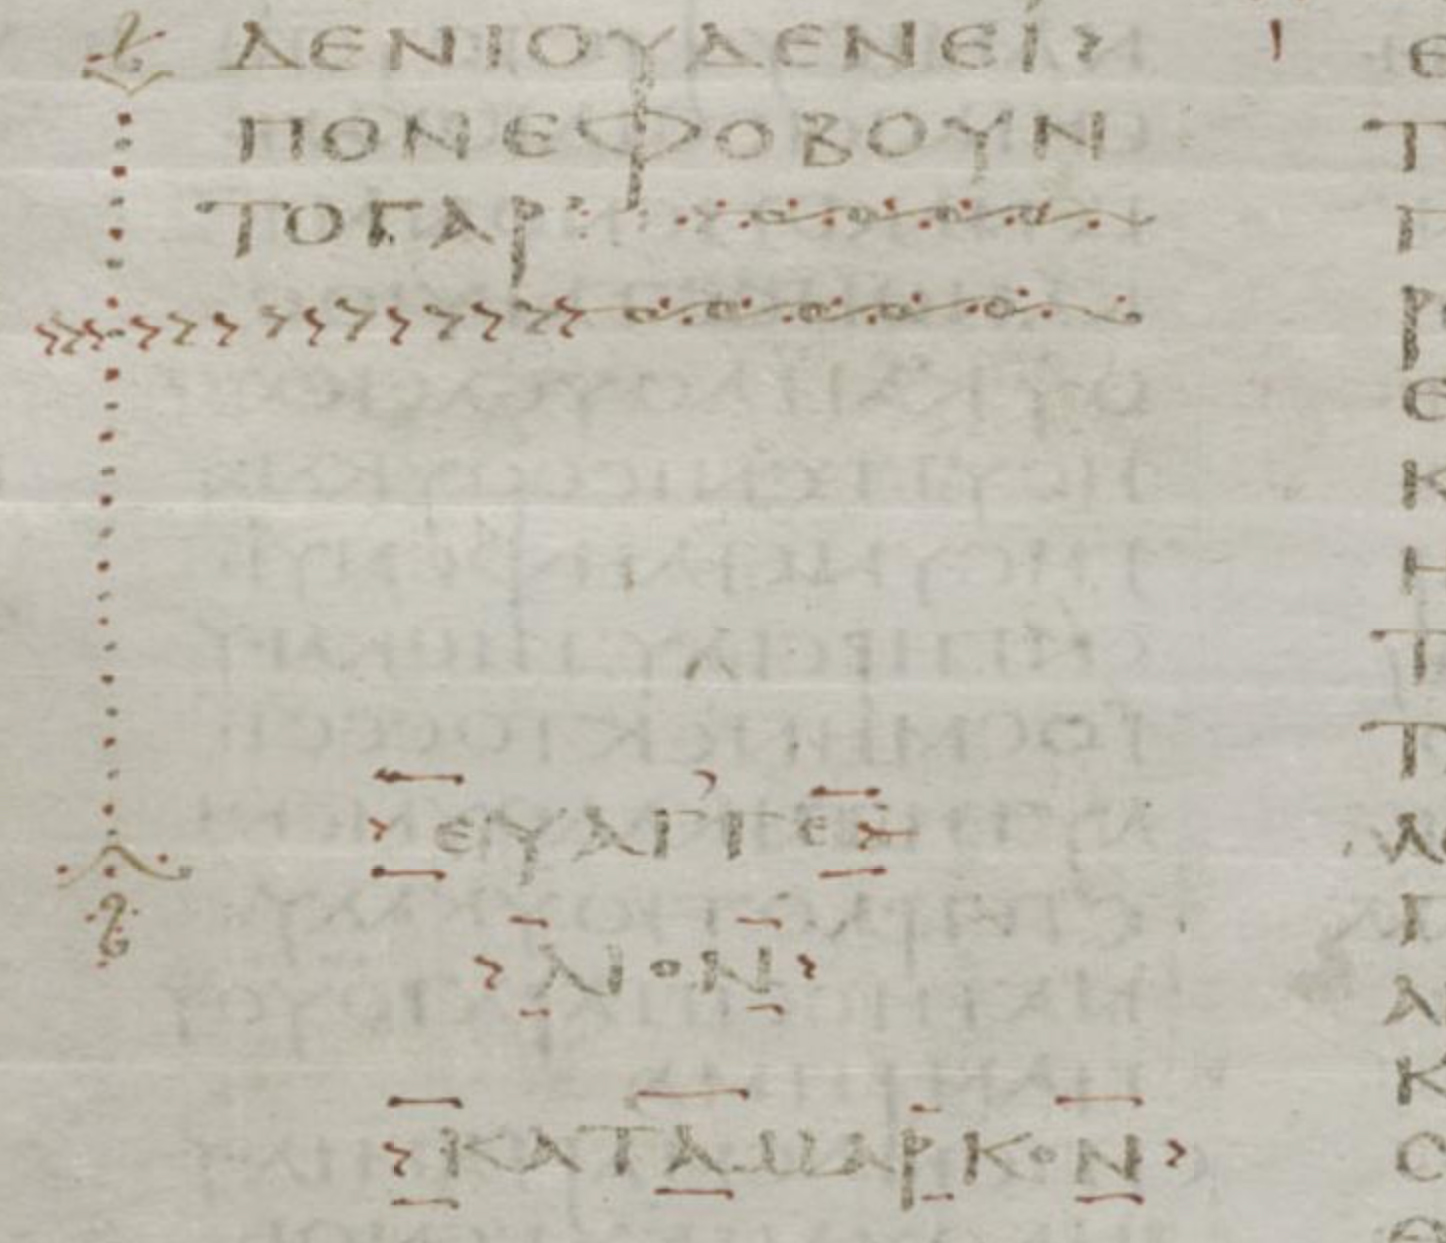 ΔΕΝΙΟΥΔΕΝΕΙ>
ΠΟΝΕΦΟΒΟΥΝ
ΤΟΓΑΡ:
ΕΥΑΓΓΕ
ΛΙΟΝ
ΚΑΤΑΜΑΡΚΟΝ